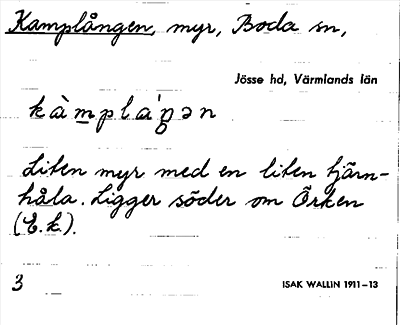 Kamplången, myr, Boda sn,
Jösse hd, Värmlands län
kàmpla'ŋən
Liten myr med en liten tjärn-
håla. Ligger söder om Örken
(E.k.).
3
ISAK WALLIN 1911–13